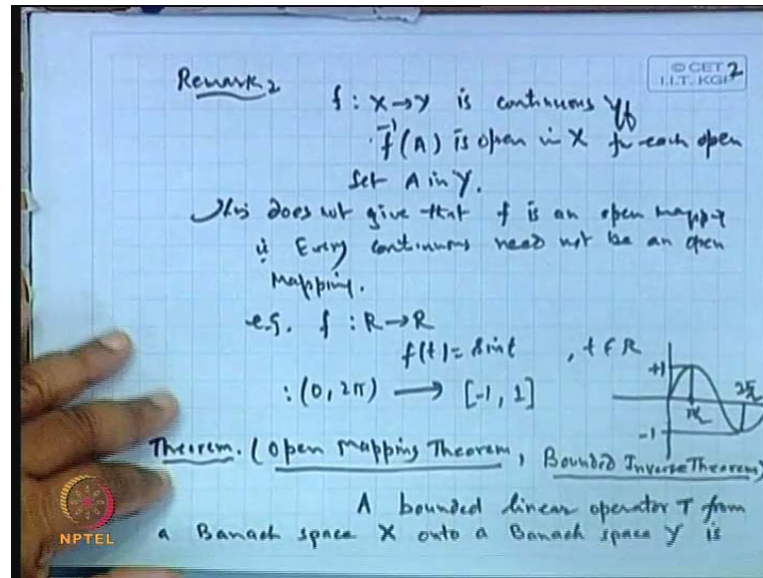 © CET 2
I.I.T. KGP
Remark 2
f : X → Y is continuous iff
f⁻¹(A) is open in X for each open
set A in Y.
This does not give that f is an open mapping
i.e. Every continuous need not be an open
mapping.
e.g. f : R → R
f(t) = sin t , t ∈ R
: (0, 2π) → [-1, 1]
+1
-1
Theorem. (Open Mapping Theorem, Bounded Inverse Theorem)
A bounded linear operator T from
a Banach space X onto a Banach space Y is
NPTEL